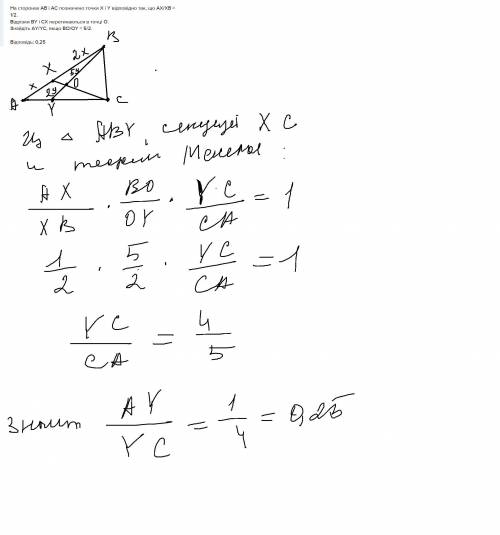 На сторонах АВ і АС позначено точки X і Y відповідно так, що AX/XB =
1/2.
Відрізки BY і CX перетинаються в точці O.
Знайдіть AY/YC, якщо BO/OY = 5/2.
Відповідь: 0,25
B
2x
X
5y
x
O
2y
A
Y
C
Из △ ABY, секущей XC
и теорем Менелая :
AX/XB · BO/OY · YC/CA = 1
1/2 · 5/2 · YC/CA = 1
YC/CA = 4/5
Значит AY/YC = 1/4 = 0,25